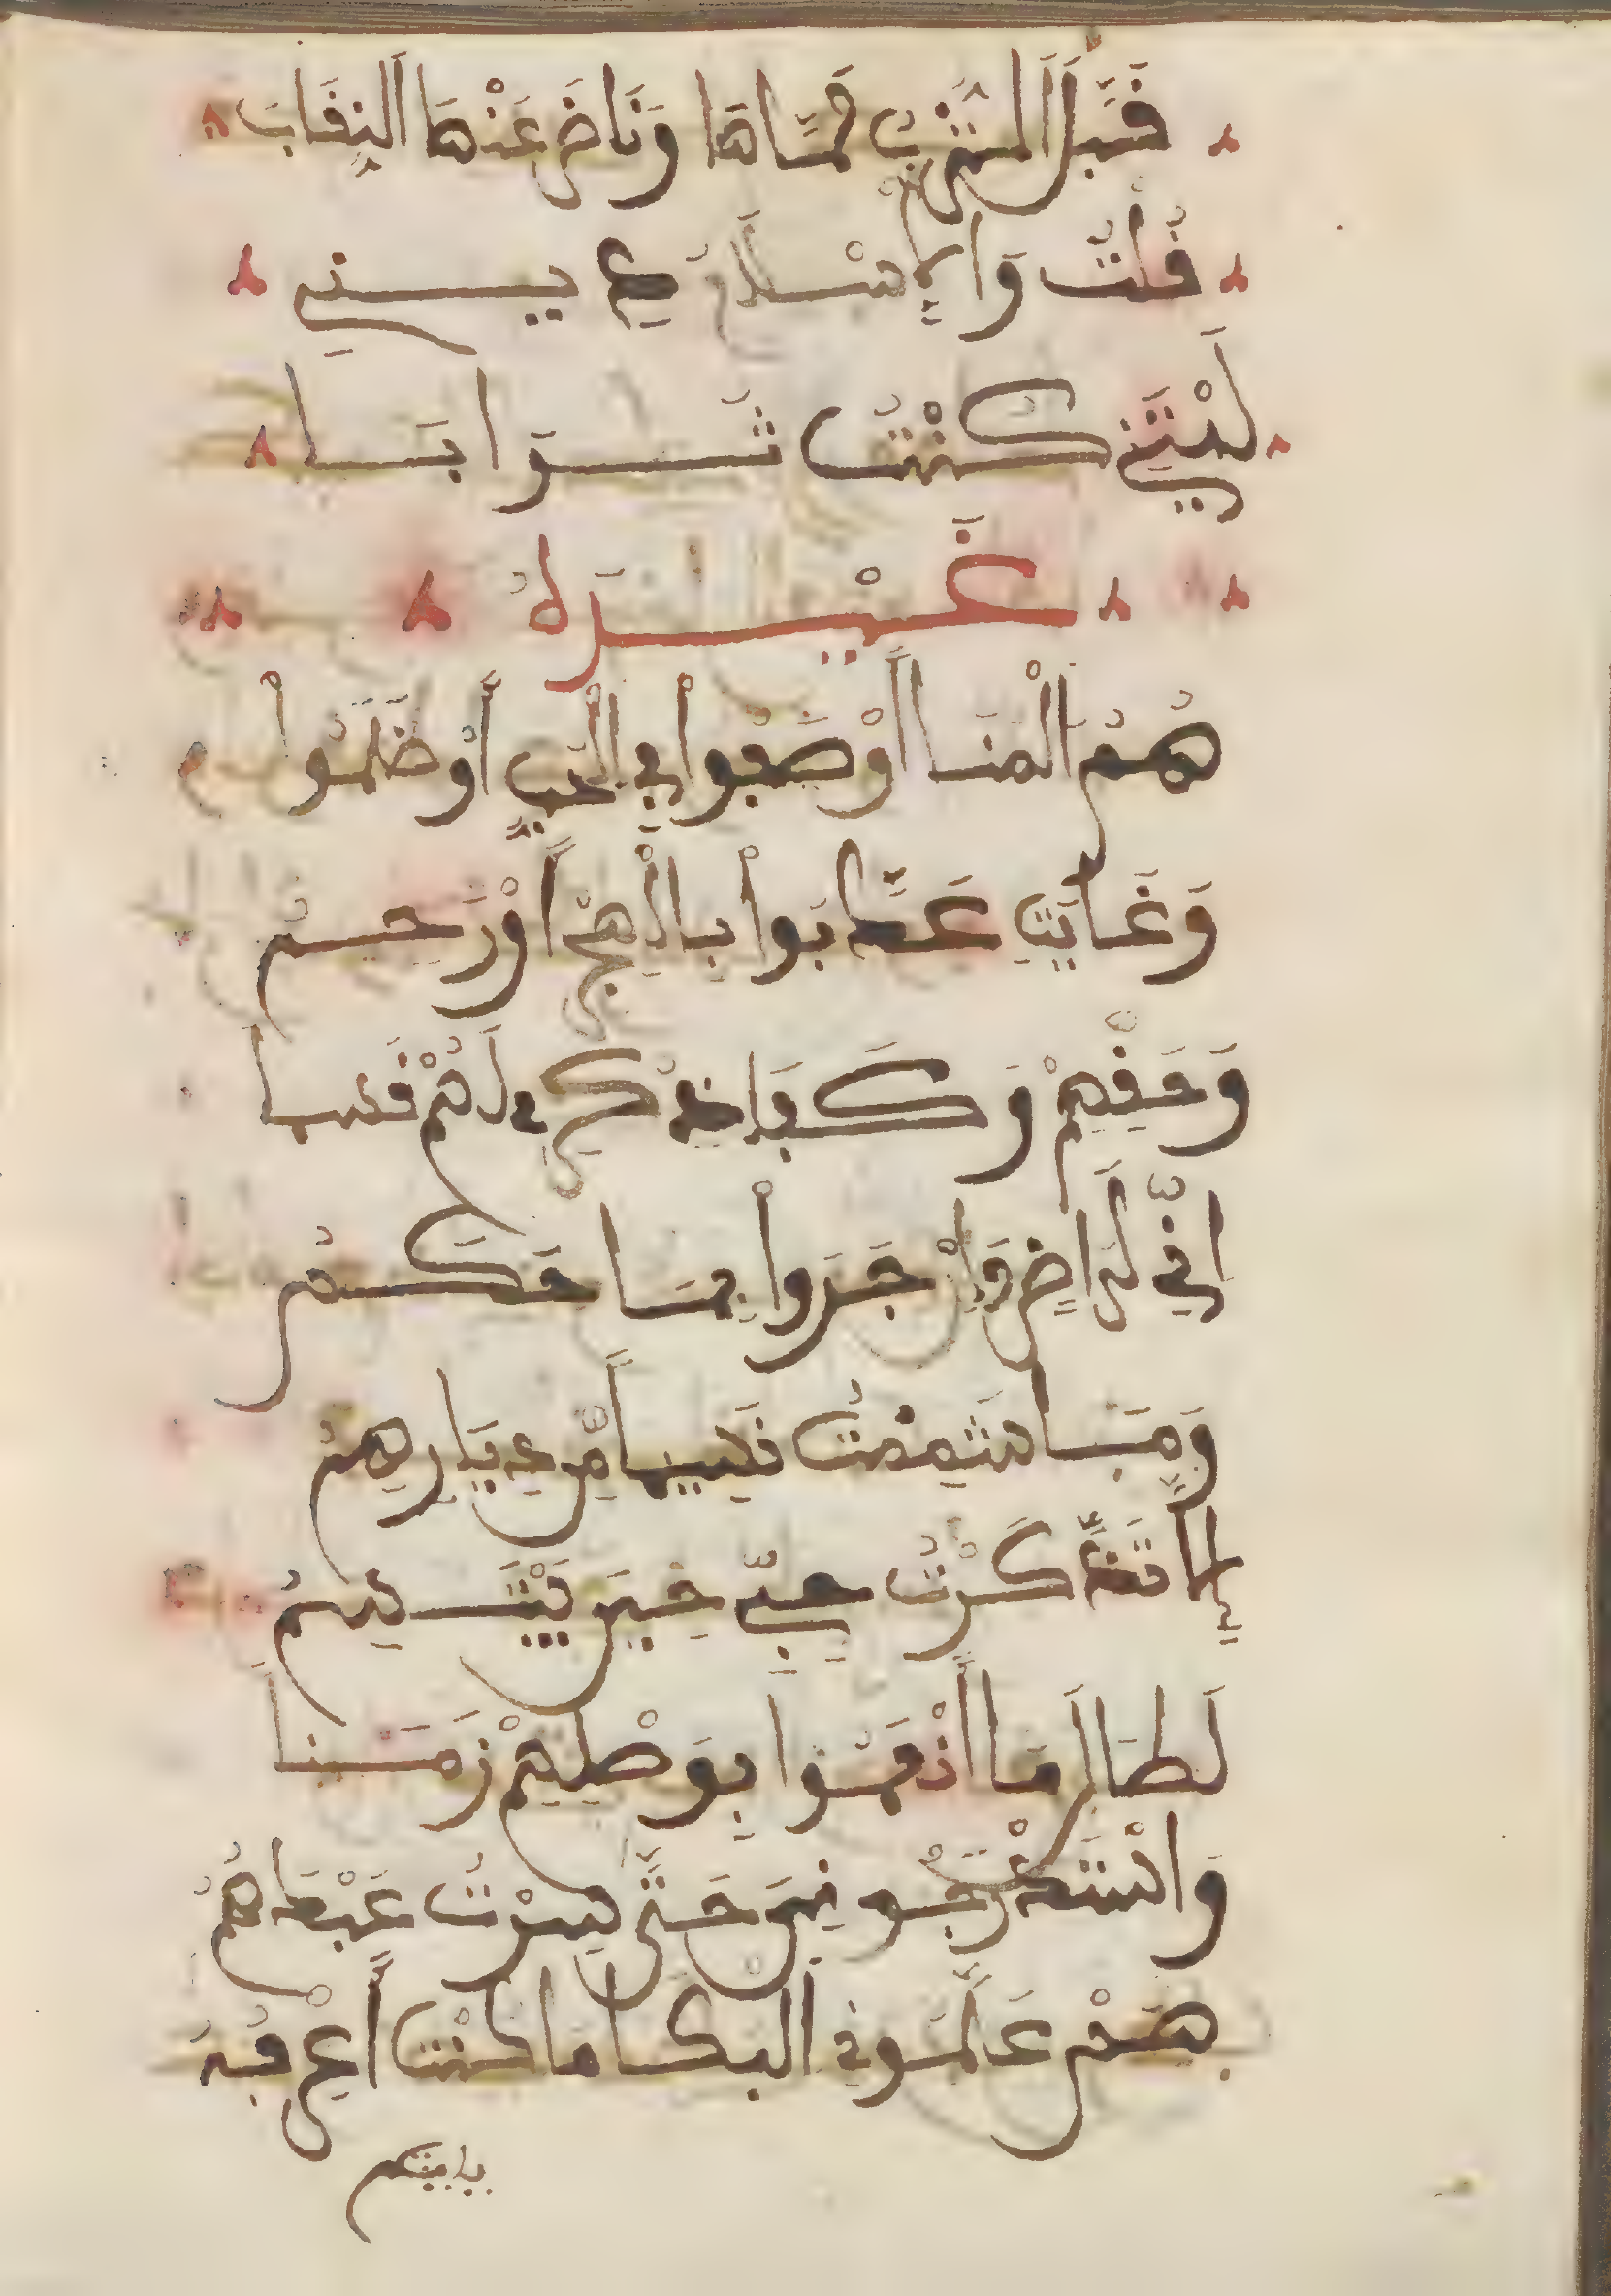 فَبَّلَ التُّرْبَ ثُمَّاهَا وَنَاضَ عَنْهَا النِّقَابَ
قُلْتُ وَالإِسْلَامُ دِينِي
لَيْتَنِي كُنْتُ تُرَابَا
غَيْرُهُ
هُمُ الْمُنَا أَوْصَبُوا فِي الْحُبِّ أَوْ ظَلَمُوا
وَغَايَتِي عَذَّبُوا بِالْهَجْرِ أَوْ رَحِمُ
وَحَقِّهِمْ وَكَفَى ذِكْرِي لَهُمْ قَسَمَا
إِنِّي لَرَاضٍ وَإِنْ جَرَوا بِمَا حَكَمُ
وَمَا شَمِمْتُ نَسِيماً مِّن دِيَارِهِمُ
إِلَّا تَذَكَّرْتُ حِبِّي حِينَ يَبْتَسِمُ
لَطَالَ مَا أَنْعَمُوا بِوَصْلِهِمْ زَمَناً
وَاسْتَدْرَجُونِيَ حَتَّى صِرْتُ عَبْدَهُمُ
هُمْ عَلَّمُونِي الْبُكَا مَا كُنْتُ أَعْرِفُهُ
يا ليتهم